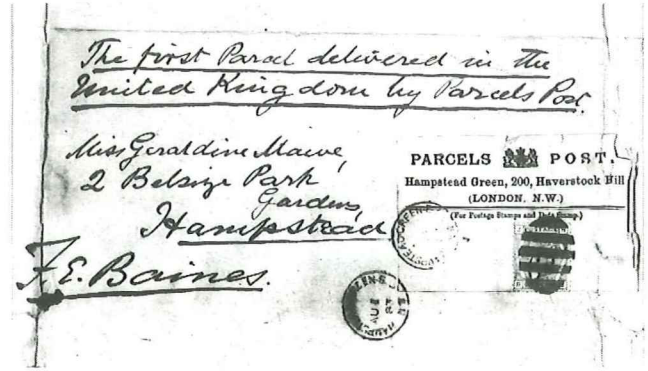 The first Parcel delivered in the
United Kingdom by Parcels Post.
Miss Geraldine Mawe,
2 Belsize Park
Gardens,
Hampstead
F. E. Baines.
PARCELS POST.
Hampstead Green, 200, Haverstock Hill
(LONDON, N.W.)
(For Postage Stamps and Date Stamp.)
AU